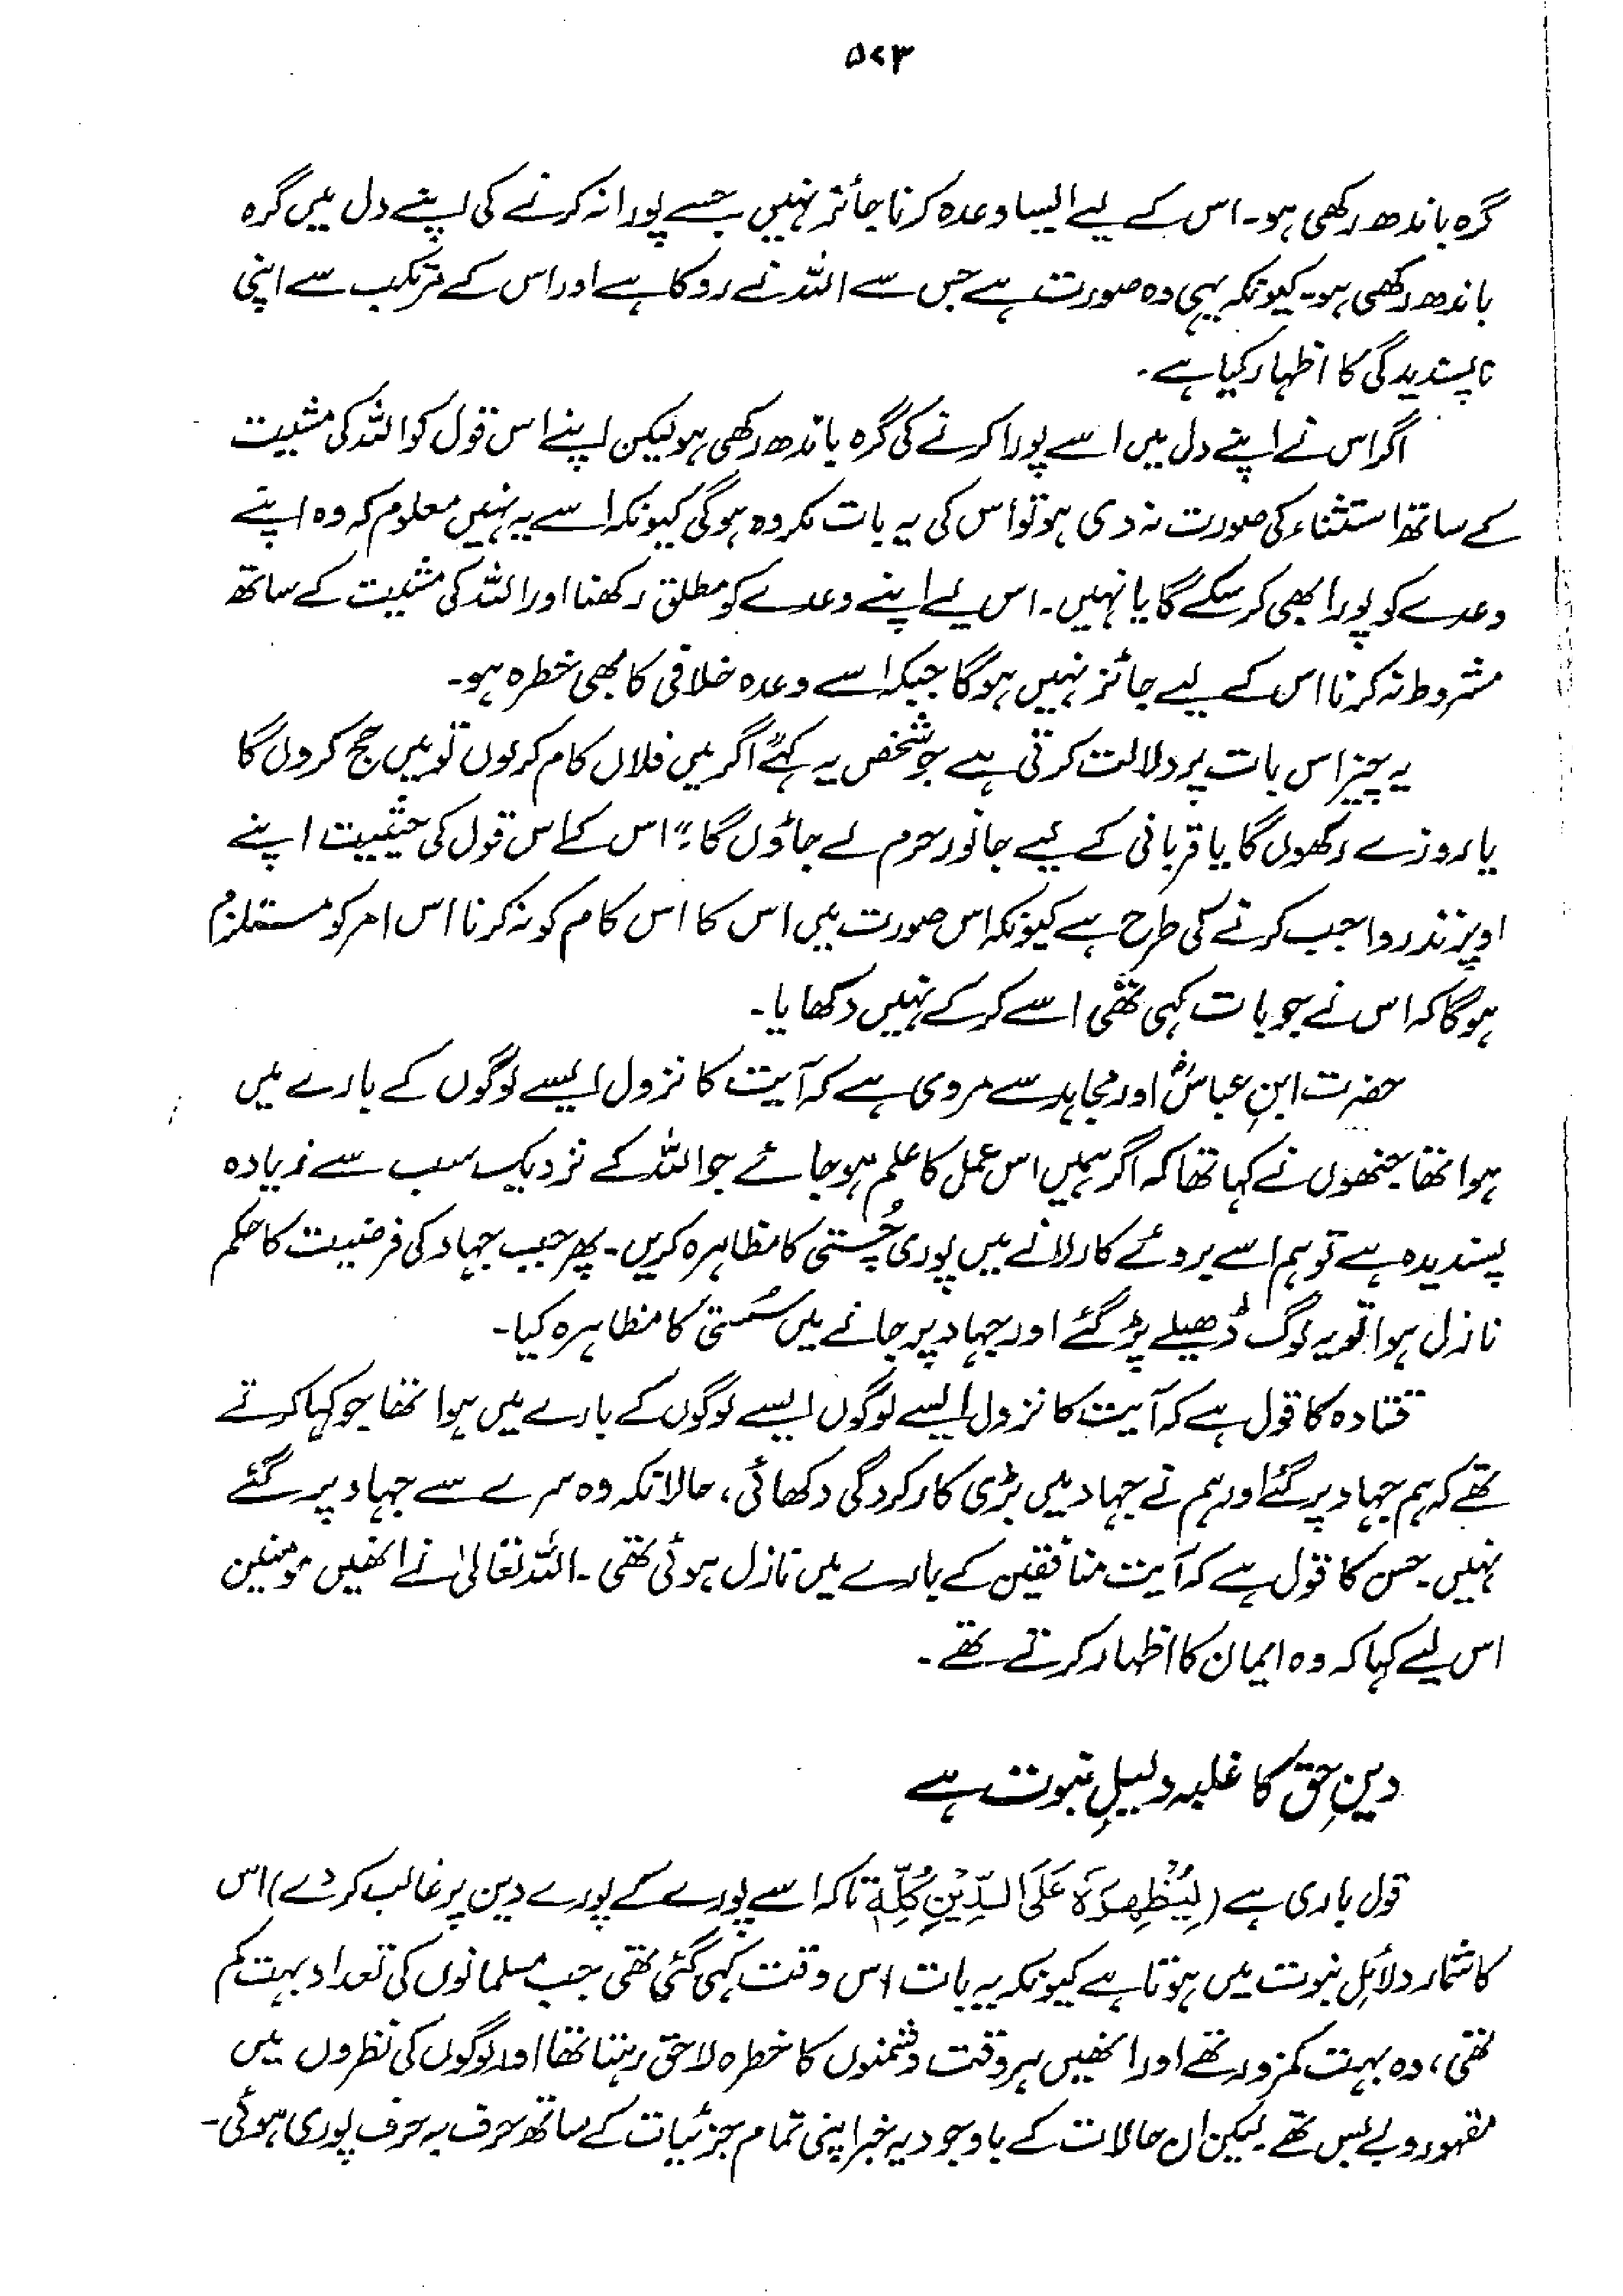 ۵۷۳
گرہ باندھ رکھی ہو۔ اس کے لیے ایسا وعدہ کرنا جائز نہیں جسے پورا نہ کرنے کی اپنے دل میں گرہ
باندھ رکھی ہو۔ کیونکہ یہی وہ صورت ہے جس سے اللہ نے روکا ہے اور اس کے مرتکب سے اپنی
ناپسندیدگی کا اظہار کیا ہے۔
اگر اس نے اپنے دل میں اسے پورا کرنے کی گرہ باندھ رکھی ہو لیکن اپنے اس قول کو اللہ کی مشیت
کے ساتھ استثناء کی صورت نہ دی ہو تو اس کی یہ بات مکروہ ہوگی کیونکہ اسے یہ نہیں معلوم کہ وہ اپنے
وعدے کو پورا بھی کر سکے گا یا نہیں۔ اس لیے اپنے وعدے کو مطلق رکھنا اور اللہ کی مشیت کے ساتھ
مشروط نہ کرنا اس کے لیے جائز نہیں ہوگا جبکہ اسے وعدہ خلافی کا بھی خطرہ ہو۔
یہ چیز اس بات پر دلالت کرتی ہے جو شخص یہ کہے "اگر میں فلاں کام کرلوں تو میں حج کروں گا
یا روزے رکھوں گا یا قربانی کے لیے جانور حرم لے جاؤں گا۔" اس کے اس قول کی حیثیت اپنے
اوپر نذر واجب کرنے کی طرح ہے کیونکہ اس صورت میں اس کا اس کام کو نہ کرنا اس امر کو مستلزم
ہوگا کہ اس نے جو بات کہی تھی اسے کر کے نہیں دکھایا۔
حضرت ابنِ عباسؓ اور مجاہد سے مروی ہے کہ آیت کا نزول ایسے لوگوں کے بارے میں
ہوا تھا جنھوں نے کہا تھا کہ اگر ہمیں اس عمل کا علم ہو جائے جو اللہ کے نزدیک سب سے زیادہ
پسندیدہ ہے تو ہم اسے بروئے کار لانے میں پوری چُستی کا مظاہرہ کریں۔ پھر جب جہاد کی فرضیت کا حکم
نازل ہوا تو یہ لوگ ڈھیلے پڑ گئے اور جہاد پر جانے میں سُستی کا مظاہرہ کیا۔
قتادہ کا قول ہے کہ آیت کا نزول ایسے لوگوں ایسے لوگوں کے بارے میں ہوا تھا جو کہا کرتے
تھے کہ ہم جہاد پر گئے اور ہم نے جہاد میں بڑی کارکردگی دکھائی، حالانکہ وہ سرے سے جہاد پر گئے
نہیں۔ حسن کا قول ہے کہ آیت منافقین کے بارے میں نازل ہوئی تھی۔ اللہ تعالیٰ نے انھیں مومنین
اس لیے کہا کہ وہ ایمان کا اظہار کرتے تھے۔
دینِ حق کا غلبہ دلیلِ نبوت ہے
قول باری ہے (لِيُظْهِرَهٗ عَلَى الدِّيْنِ كُلِّهٖ تاکہ اسے پورے کے پورے دین پر غالب کر دے) اس
کا شمار دلائلِ نبوت میں ہوتا ہے کیونکہ یہ بات اس وقت کہی گئی تھی جب مسلمانوں کی تعداد بہت کم
تھی، وہ بہت کمزور تھے اور انھیں ہر وقت دشمنوں کا خطرہ لاحق رہتا تھا اور لوگوں کی نظروں میں
مقہور و بے بس تھے لیکن ان حالات کے باوجود یہ خبر اپنی تمام جزئیات کے ساتھ حرف بہ حرف پوری ہوئی۔